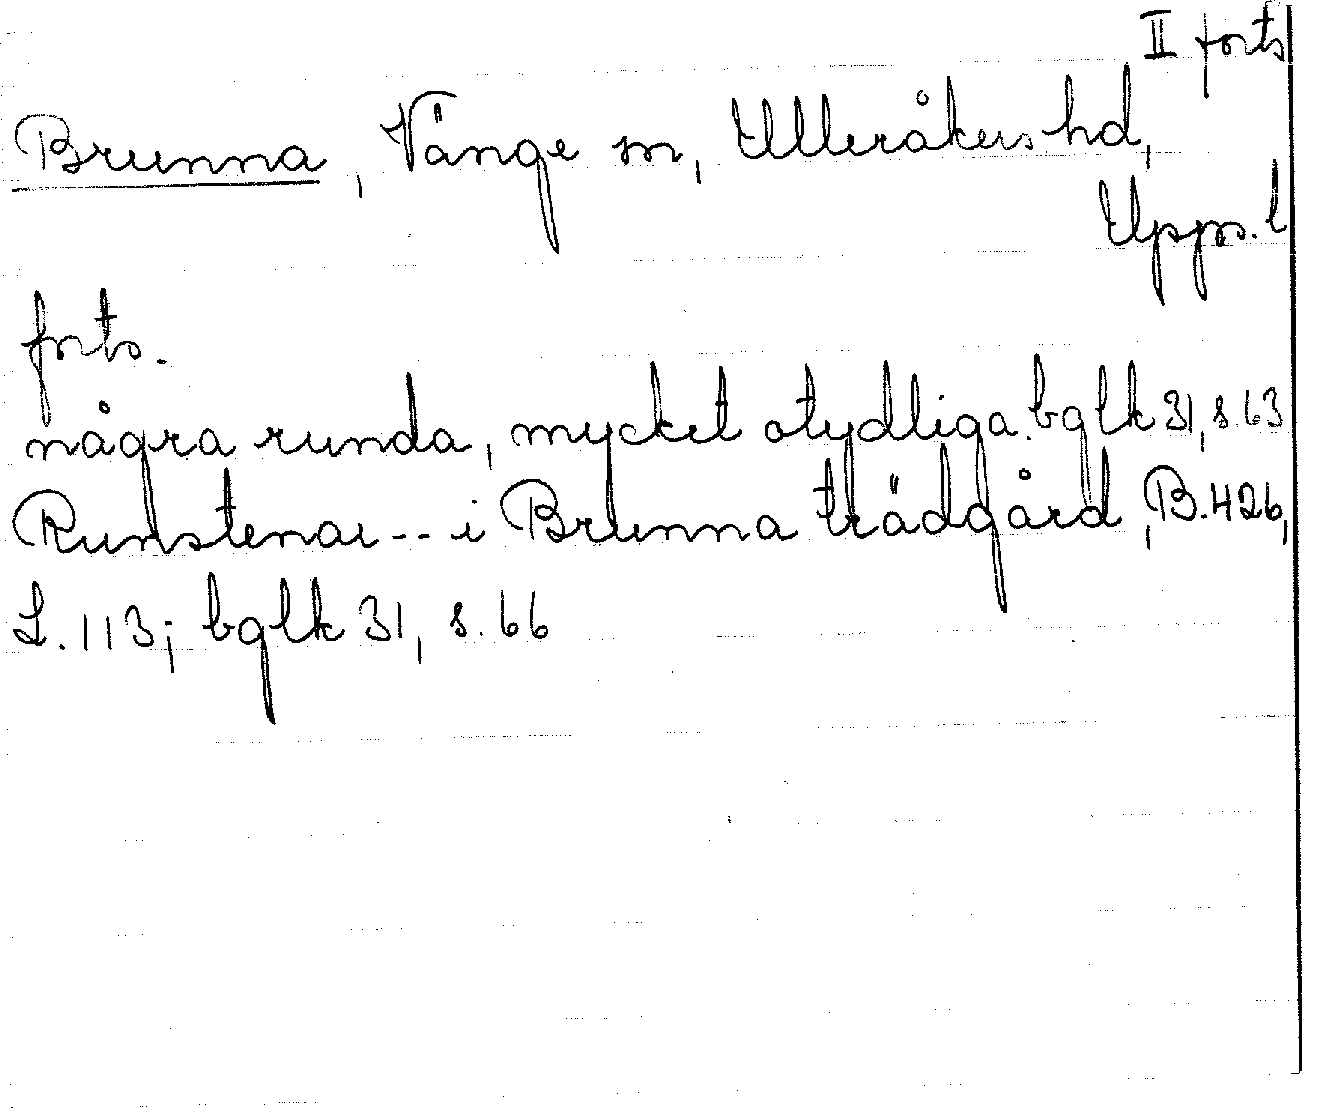 II forts
Brunna, Vänge sn, Ulleråkers hd,
Upps. l
forts.
några runda, mycket otydliga. bglk 31, s. 63
Runstenar -- i Brunna trädgård, B. 426,
L. 113; bglk 31, s. 66